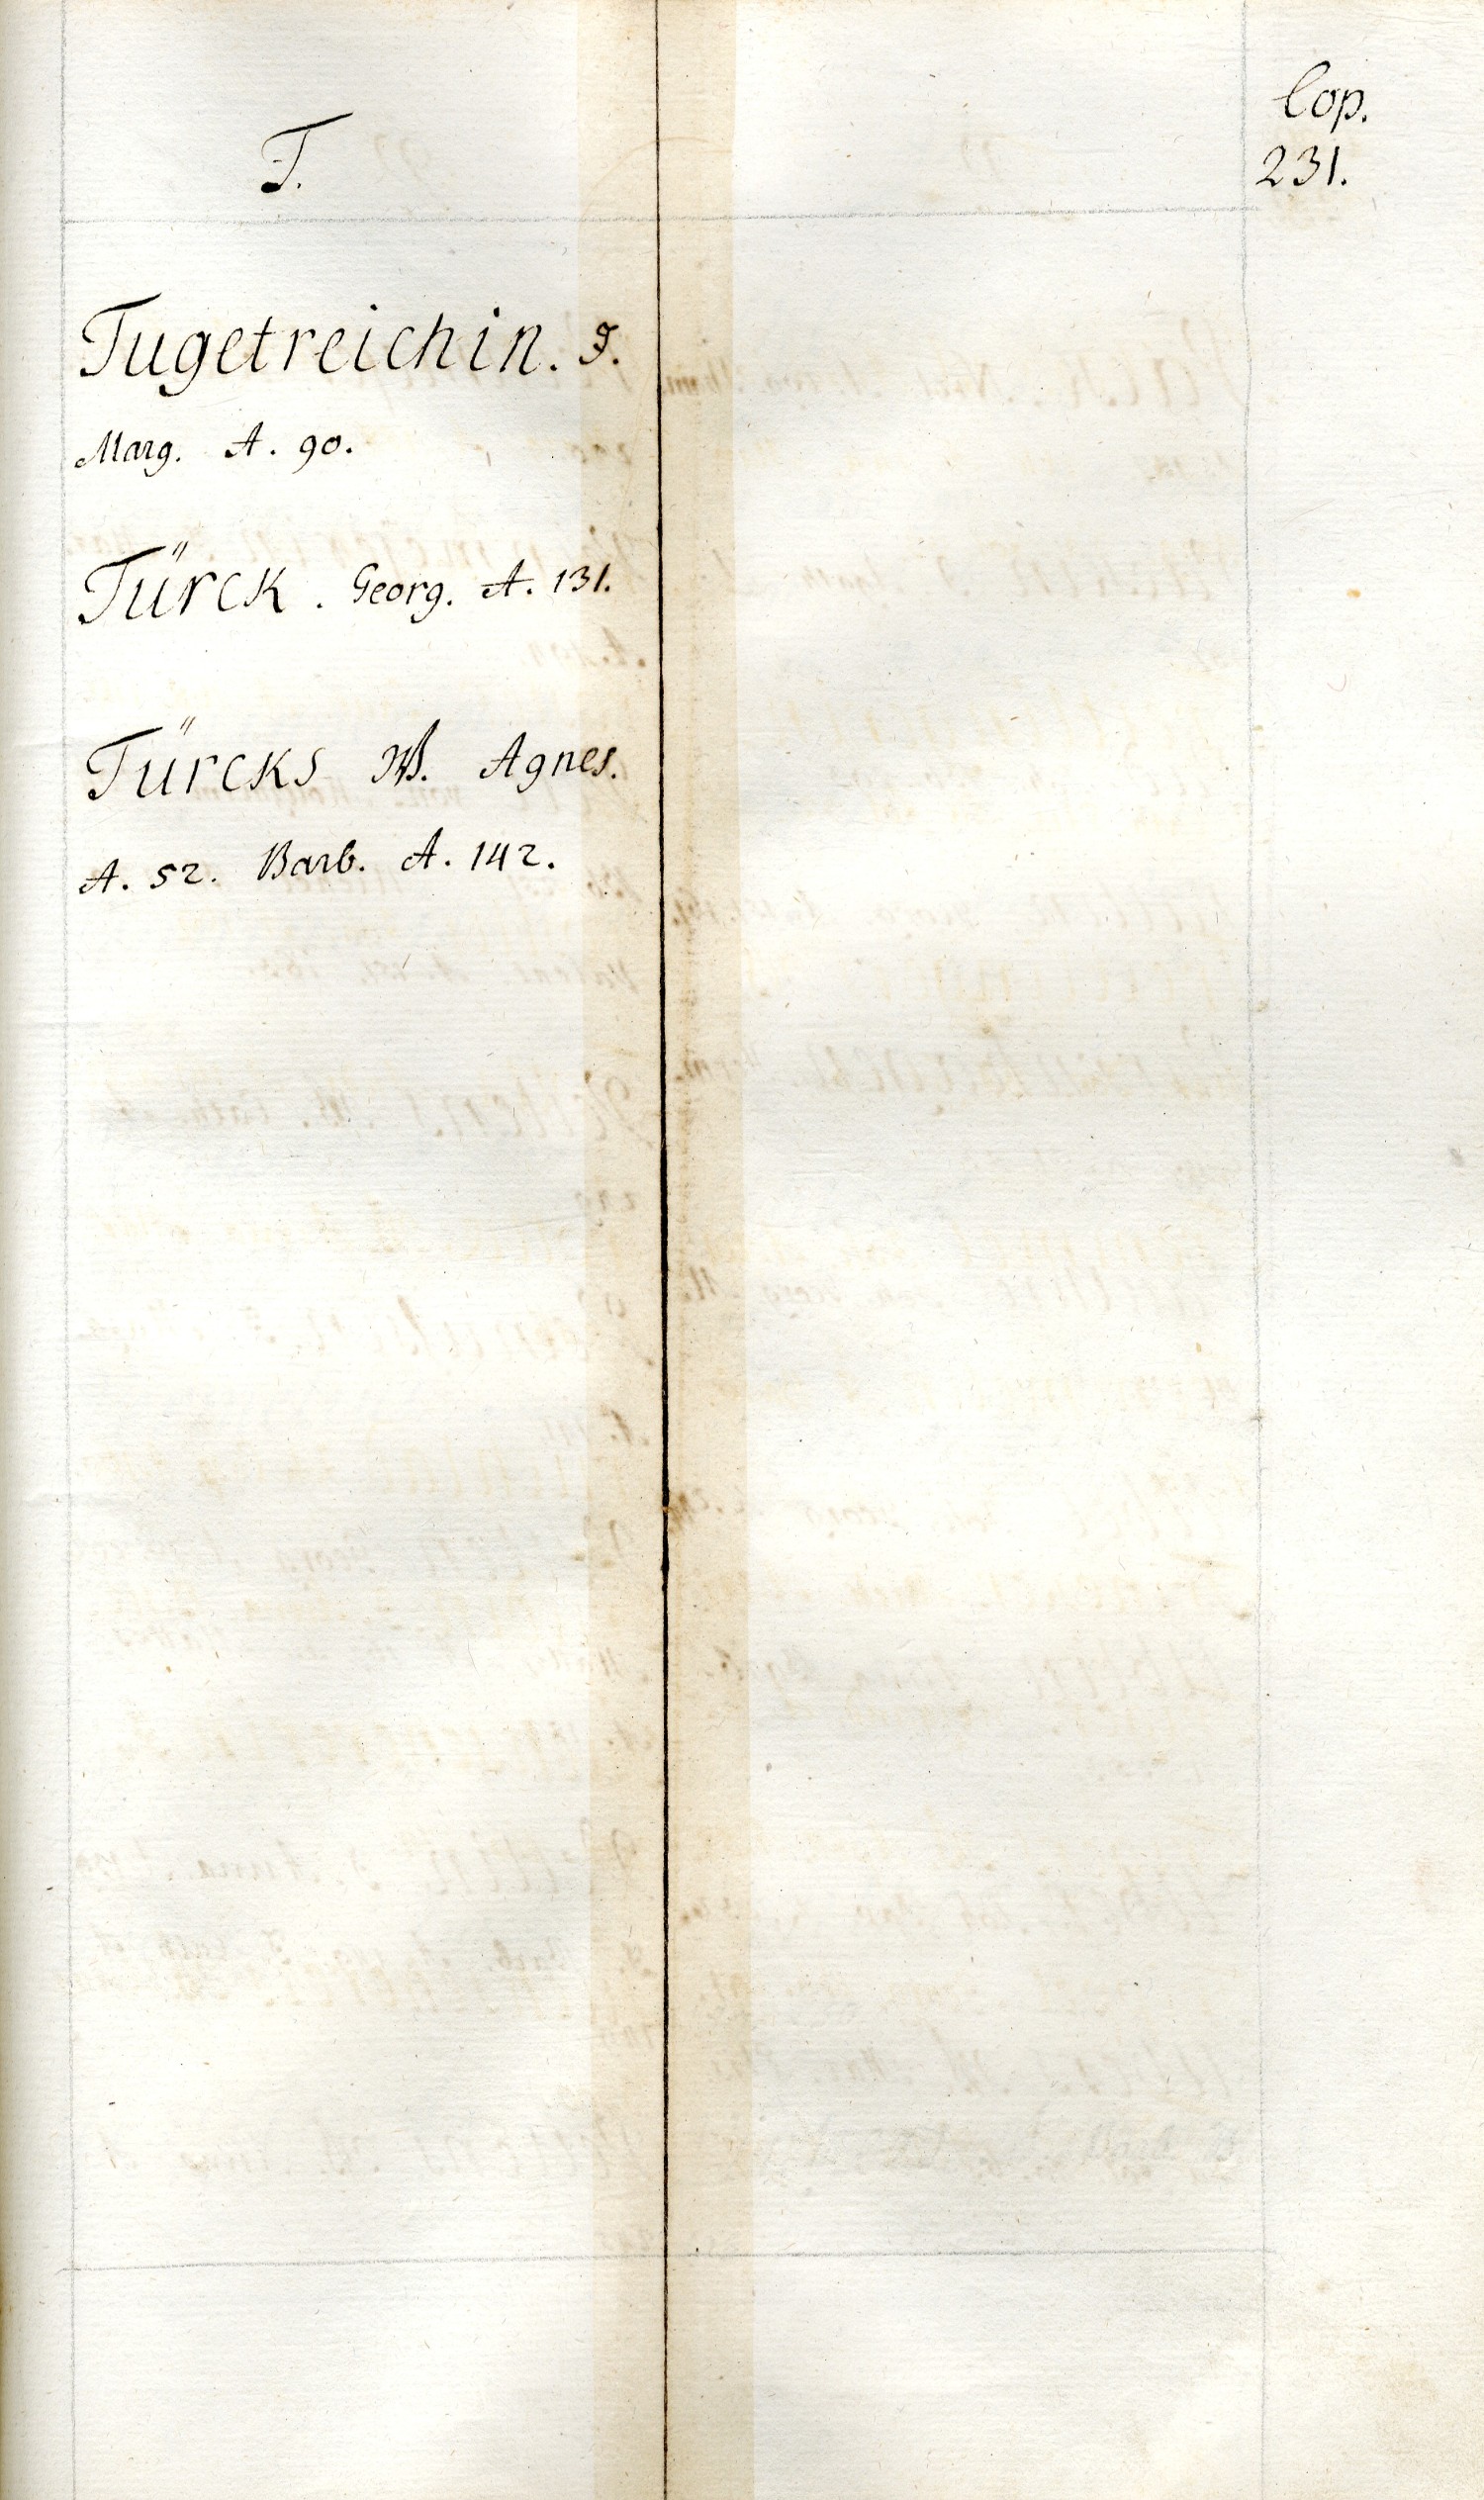 Cop.
T.
231.
Tugetreichin. J.
Marg. A. 90.
Türck. Georg. A. 131.
Türcks W. Agnes.
A. 52. Barb. A. 142.